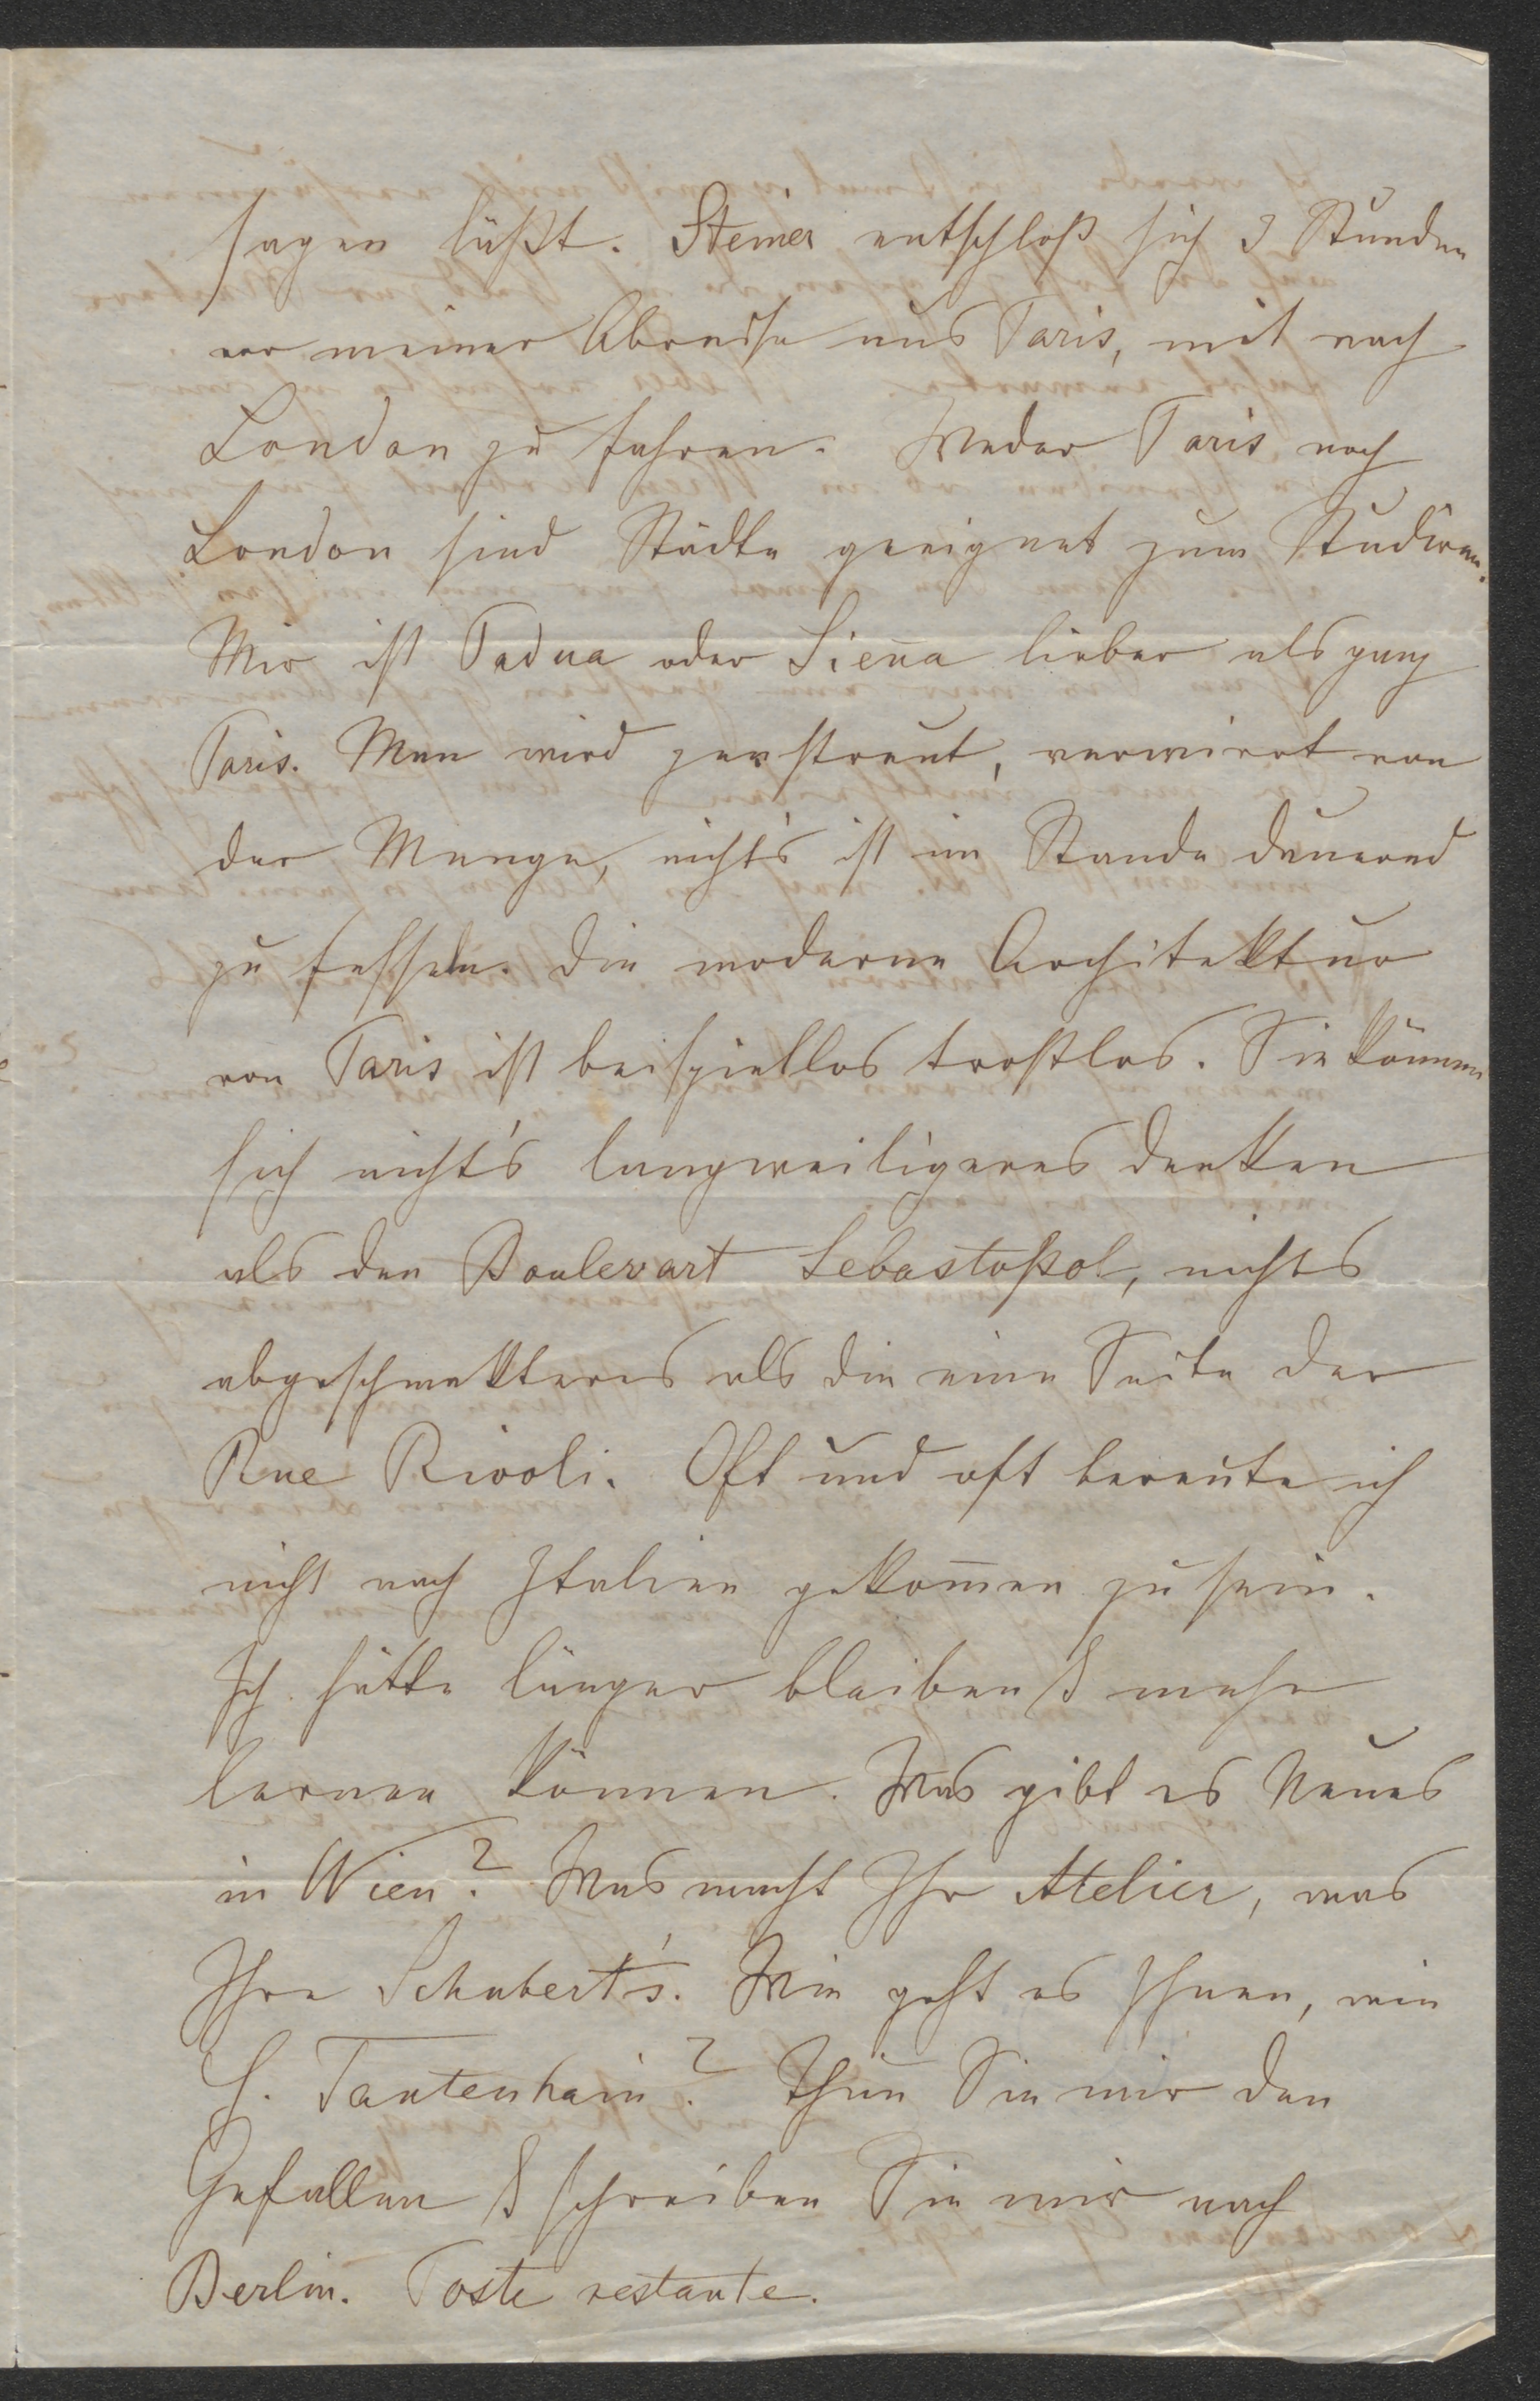 sagen läßt. Steiner entschloß sich 3 Stunden
vor meiner Abreise aus Paris, mit nach
London zu fahren. Weder Paris noch
London sind Städte geeignet zum Studiren.
Mir ist Padua oder Siena lieber als ganz
Paris. Man wird zerstreut, verwirrt von
der Menge, nicht's ist im Stande dauernd
zu fesseln. Die moderne Architektur
von Paris ist beispiellos trostlos. Sie können
sich nicht's langweiligeres denken
als den Boulevart Sebastopol, nichts
abgeschmakteres als die eine Seite der
Rue Rivoli. Oft und oft bereute ich
nicht nach Italien gekom̄en zu sein.
Ich hätte länger bleiben & mehr
lernen können. Was gibt es Neues
in Wien? Was macht Ihr Atelier, was
Ihre Schubert's. Wie geht es Ihnen, wie
H. Tautenhain? Thun Sie mir den
Gefallen & schreiben Sie mir nach
Berlin. Poste restante.